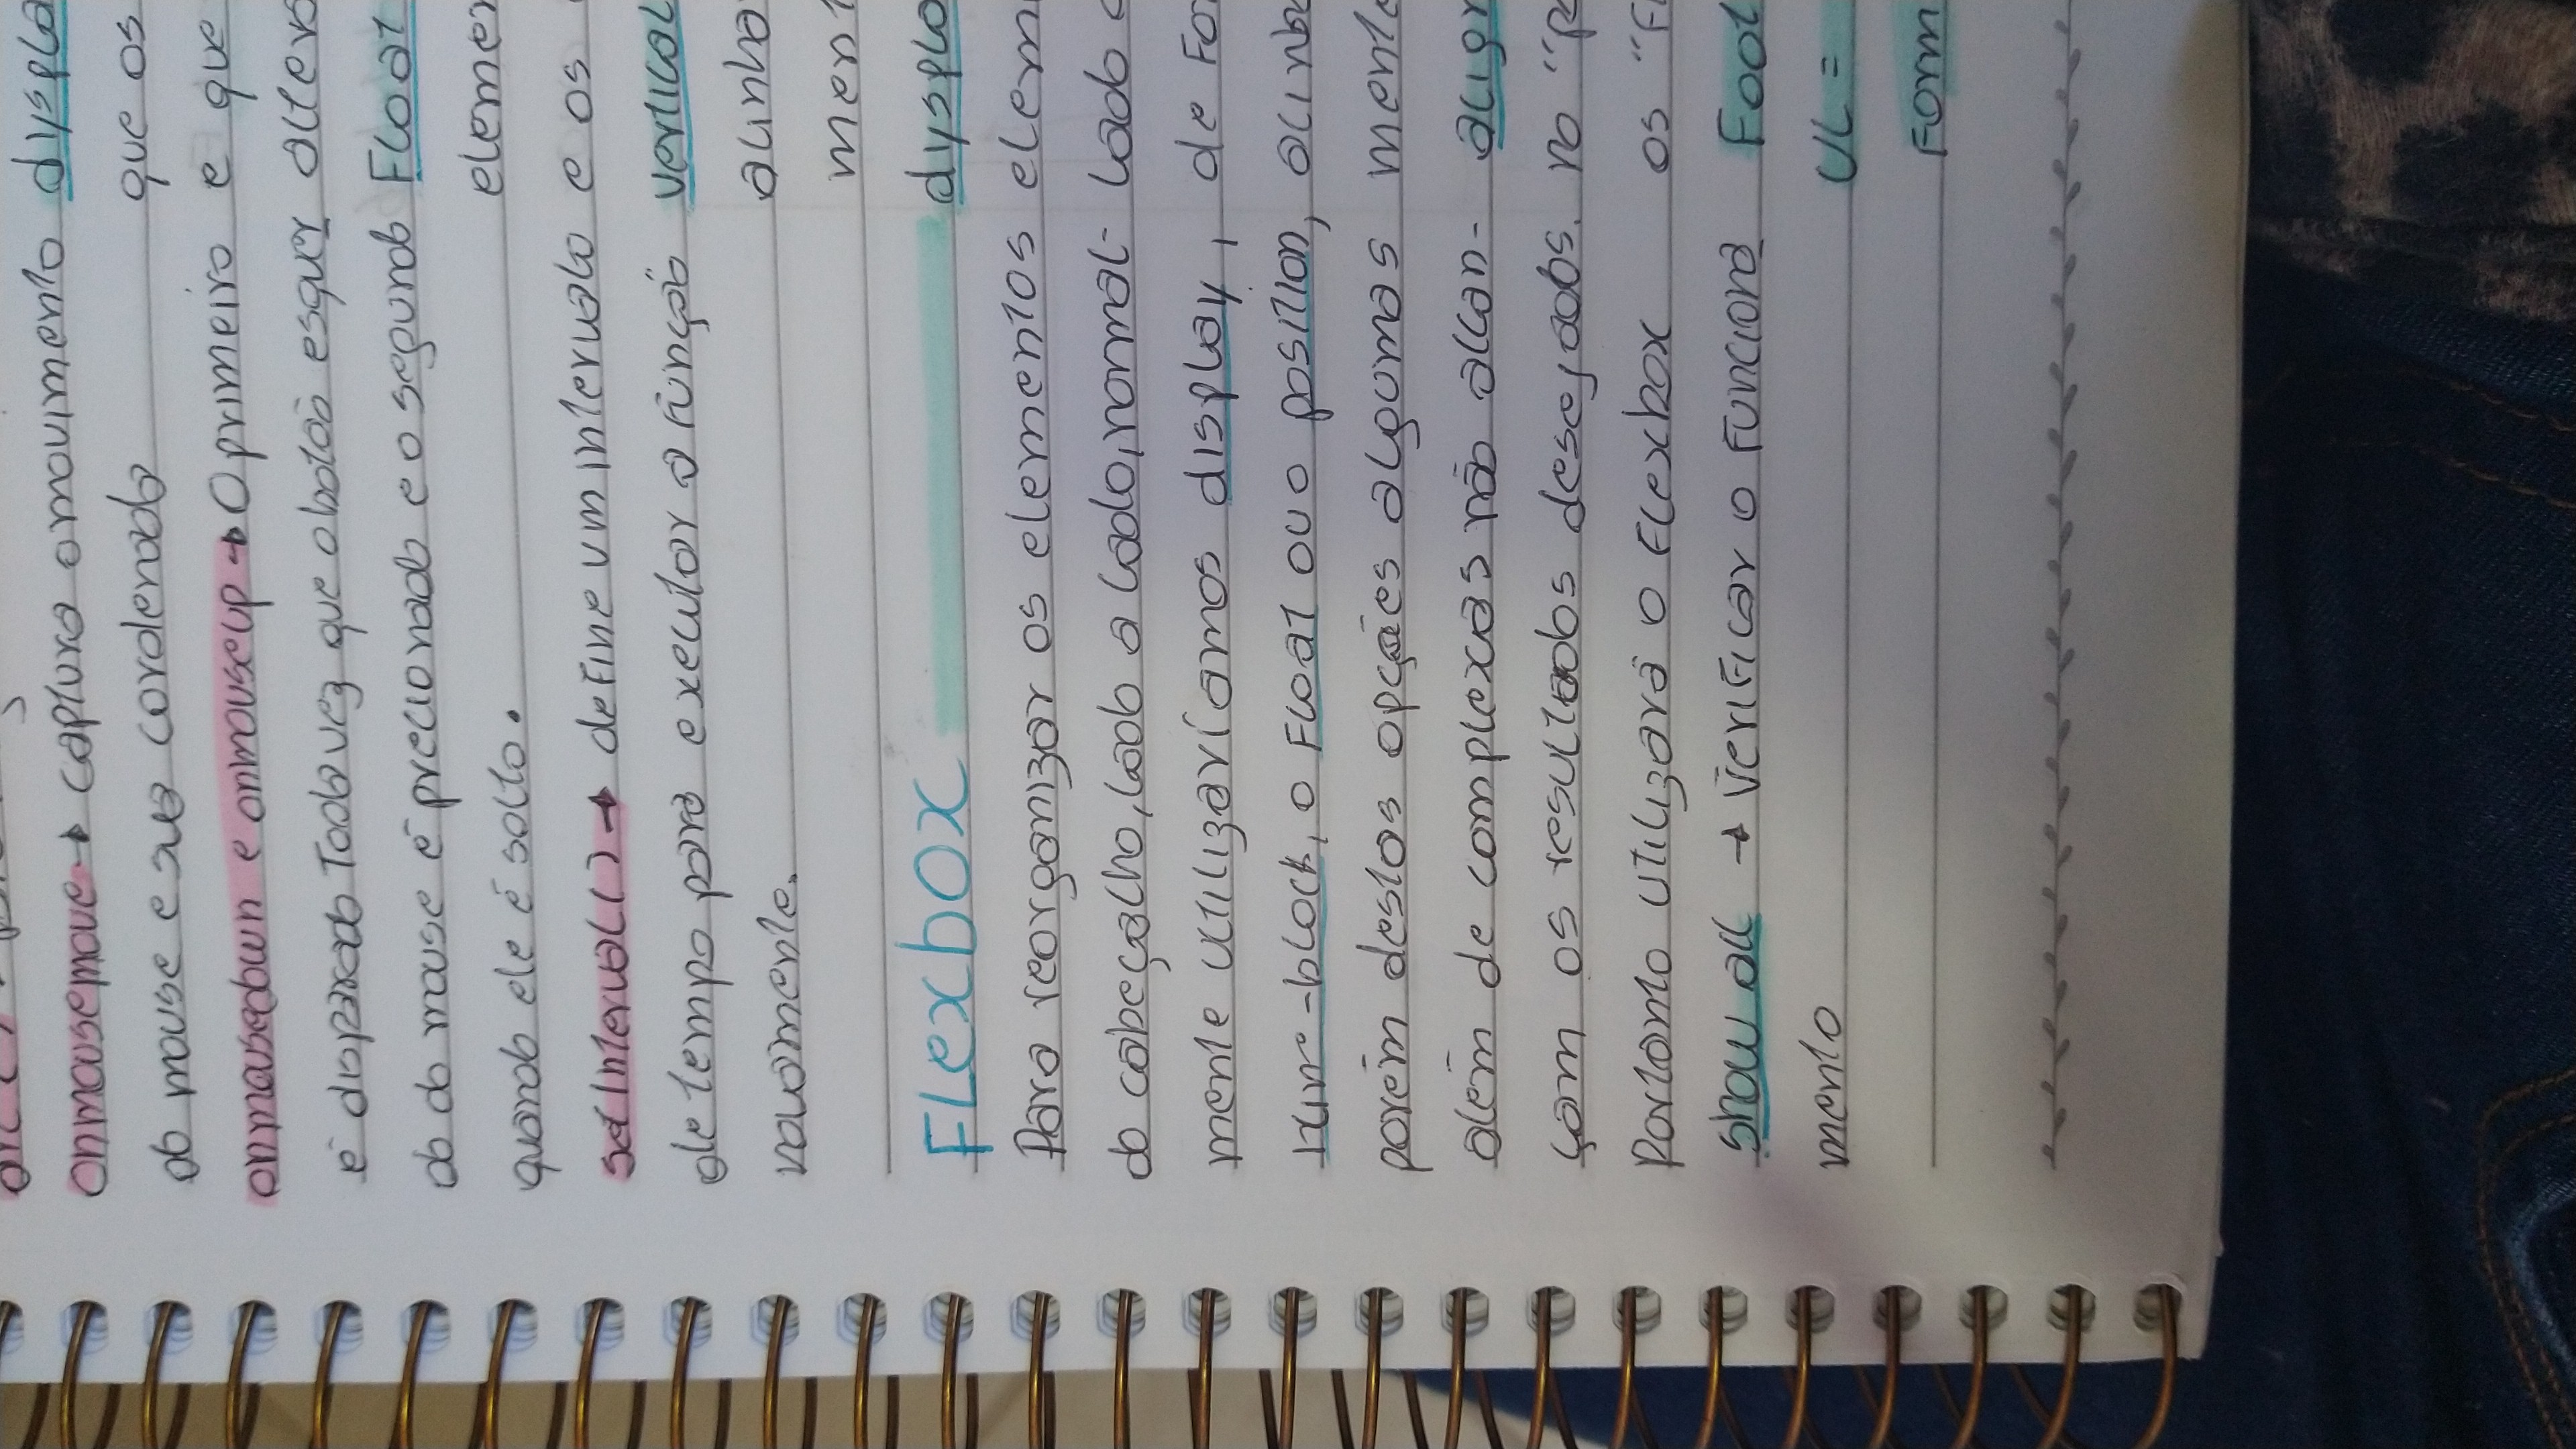 onmousemove → captura o movimento
do mouse e sua cordenada
onmousedown e onmouseup → O primeiro
é disparado Toda vez que o botão esquer
do do mouse é precionado e o segundo
quando ele é solto.
setInterval() → define um intervalo
de tempo para executar a função
novamente.
Flexbox
Para reorganizar os elementos
do cabeçalho, lado a lado, normal-
mente utilizaríamos display,
-block, o Float ou o position,
porém destas opções algumas
além de complexas não alcan-
çam os resultados desejados.
Portanto utilizará o Flexbox
show all → verificar o funciona
mento
dyspla
que os
e que
altera
Float
elemen
e os
vertical
alinha
ment
dyspla
elem
lado a
de For
alinha
mente
align
no "p
os "F
Foot
UL =
Form